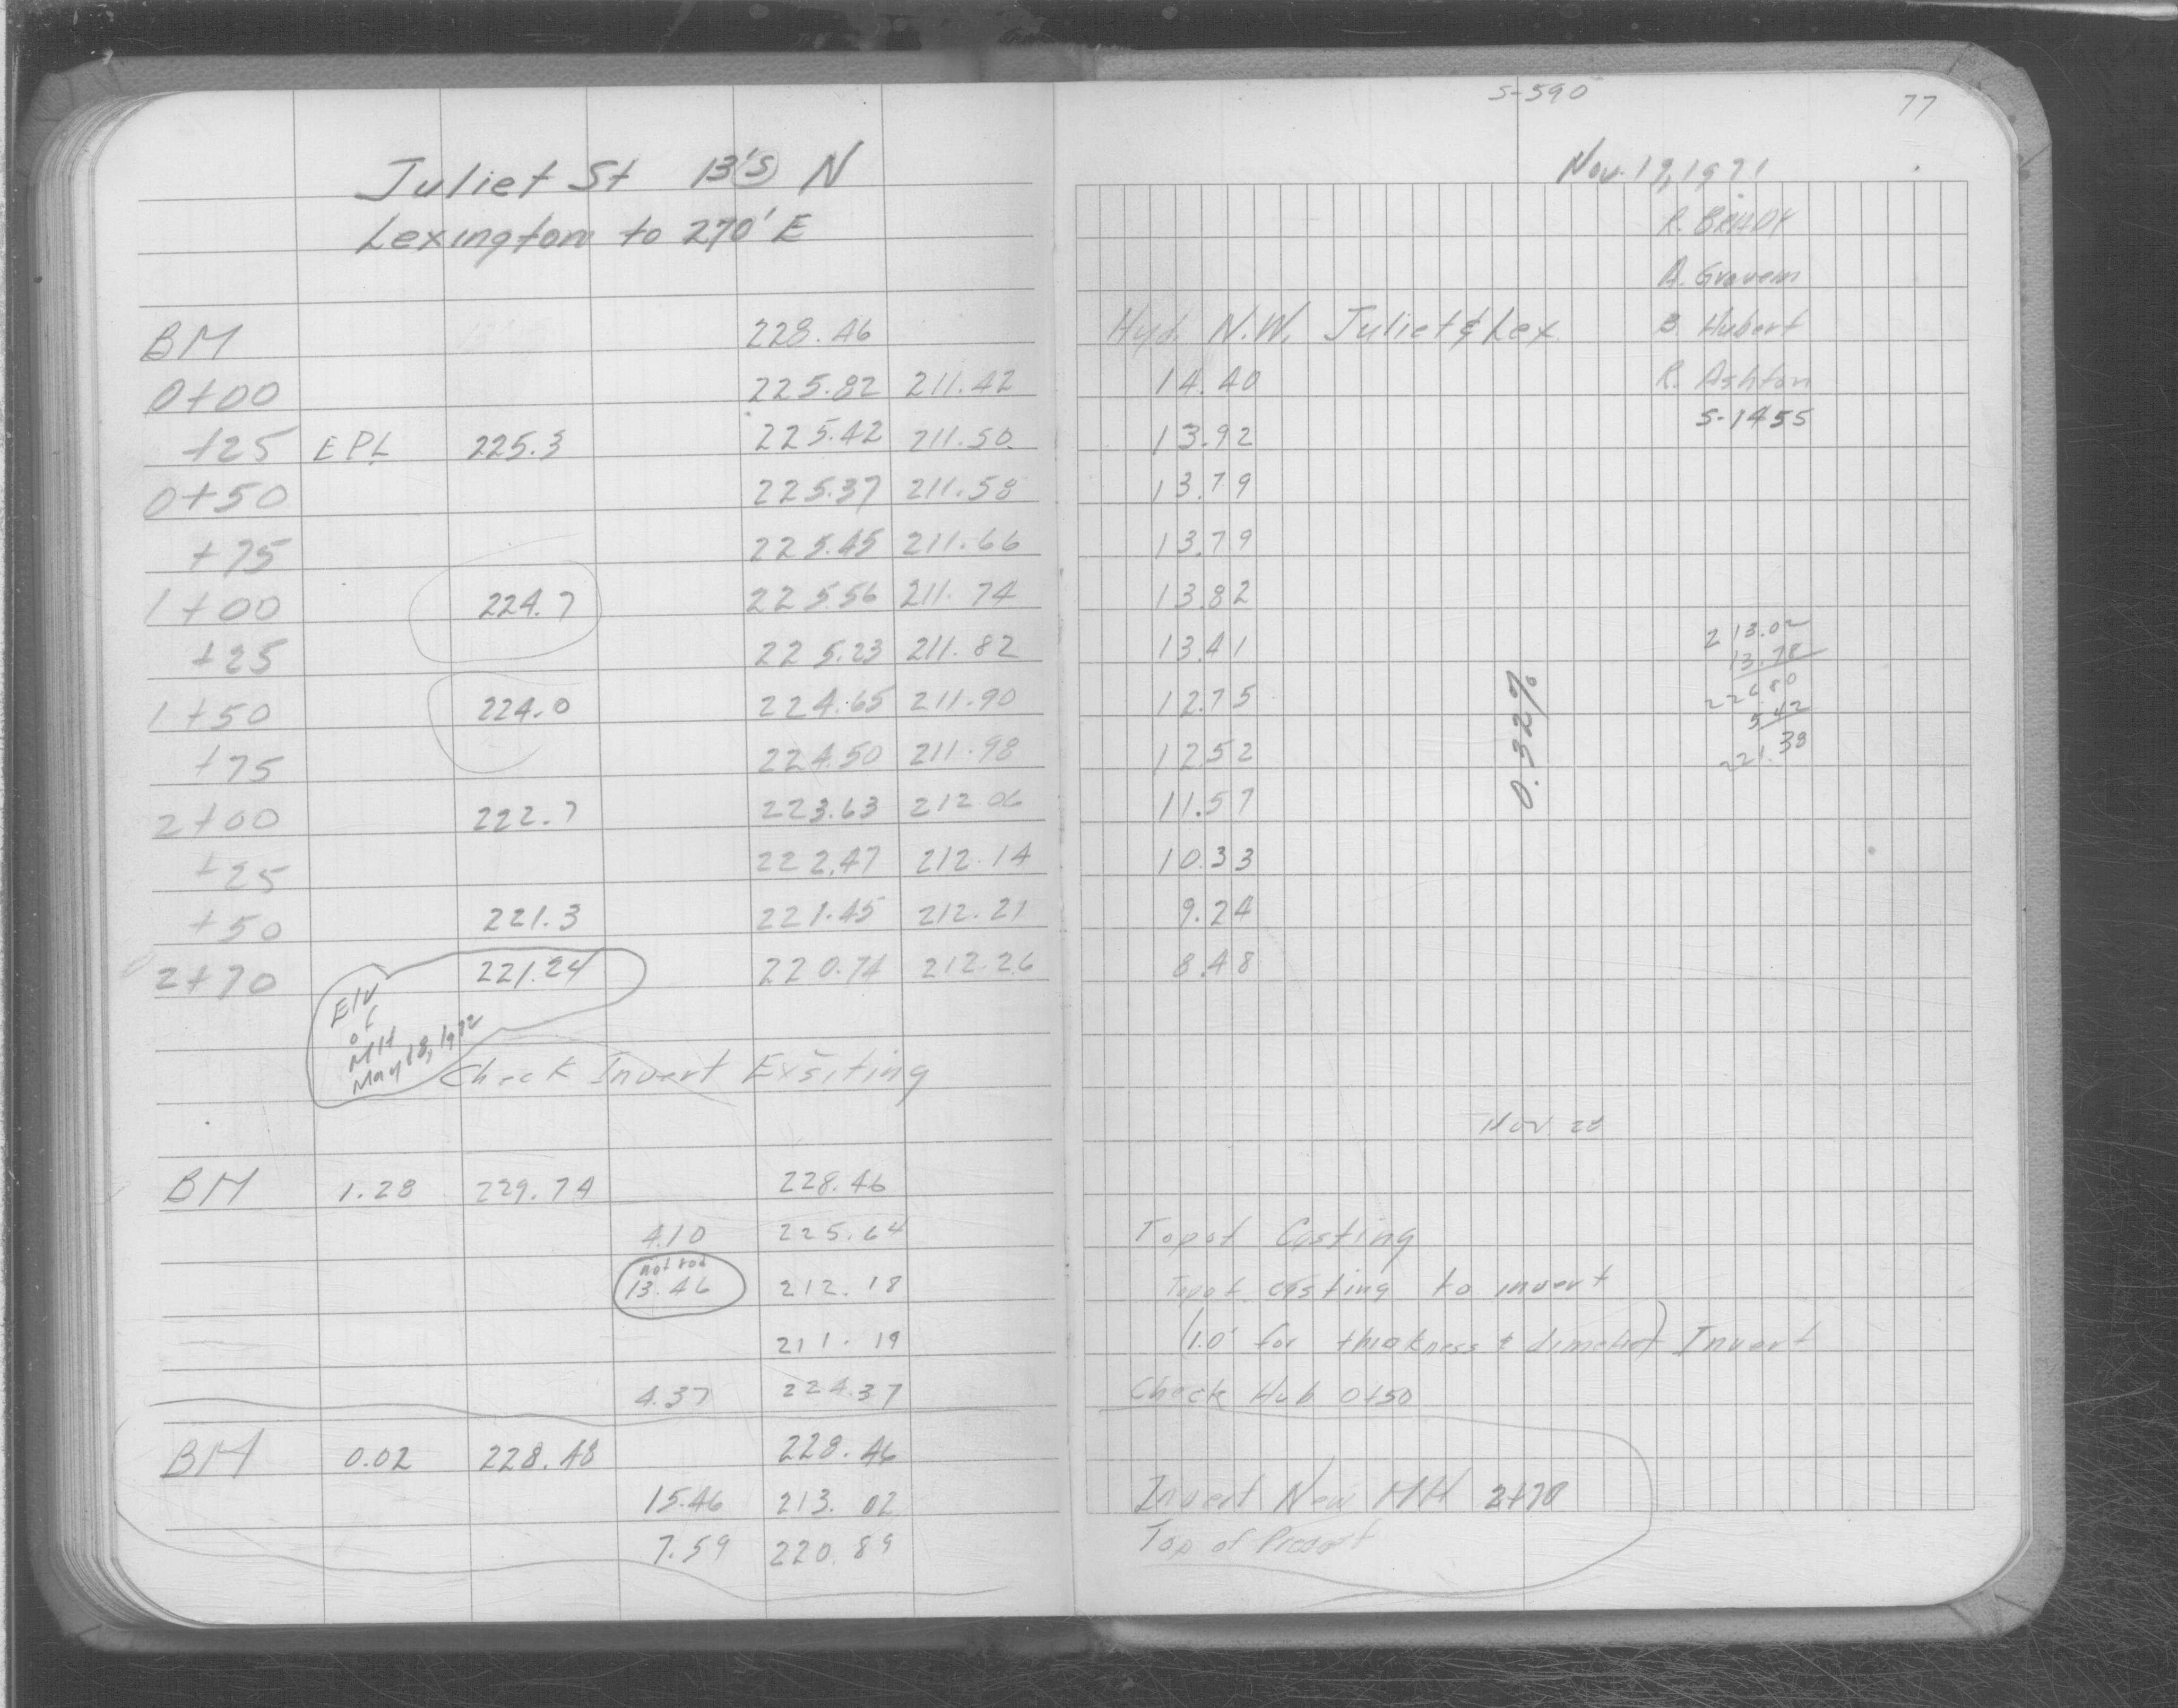 Juliet St 13' S N
Lexington to 270' E
BM 228.46
0+00 225.82 211.42
+25 EPL 225.3 225.42 211.50
0+50 225.37 211.58
+75 225.45 211.66
1+00 224.7 225.56 211.74
+25 225.23 211.82
1+50 224.0 224.65 211.90
+75 224.50 211.98
2+00 222.7 223.63 212.06
+25 222.47 212.14
+50 221.3 221.45 212.21
2+70 221.24 220.74 212.26
Elv
of
MH
May 18, 1972
Check Invert Exsiting
BM 1.28 229.74 228.46
4.10 225.64
not rod
13.46 212.18
211.19
4.37 224.37
BM 0.02 228.48 228.46
15.46 213.02
7.59 220.89
S-590
77
Nov. 19, 1971
R.
A. Gravem
B Hubert
R. Ashton
S-1455
Hyd. N.W. Juliet & Lex.
14.40
13.92
13.79
13.79
13.82
13.41
12.75
12.52
11.57
10.33
9.24
8.48
0.32%
213.02
13.78
226.80
5.42
221.38
Nov. 22
Top of Casting
Top of casting to invert
(1.0' for thiakness & dimeter) Invert
Check Hub 0+50
Invert New MH 2+70
Top of Precast